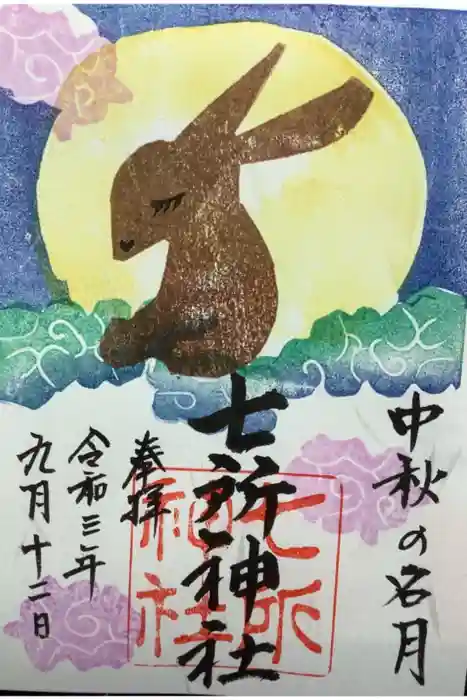 中秋の名月
七所神社
奉拝
令和三年
九月十二日
七所
神社